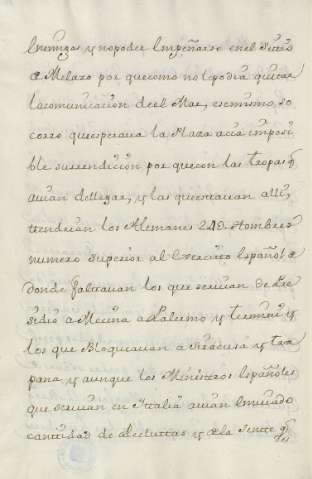 Enemigas y nopoder Empeñarse enel Sitio
de Melazo por quecomo no lepodia quitar
lacomunicacion deel Mar, esemismo so
corro queesperava la Plaza acia imposi
ble surrendicion por quecon las tropas q̃
auian dellegar, y las queestauan alli,
tendrian los Alemanes 24 Hombres
numero superior al Exercito Español de
donde faltauan los que seruian de Pre
sidio a Mecina a Palermo y Termini y
los que Bloqueauan a Siracusa y Tra
pana y aunque los Ministros Españoles
que seruian en Ittalia auian Embiado
cantidad de Reclutas y de la Gente q̃